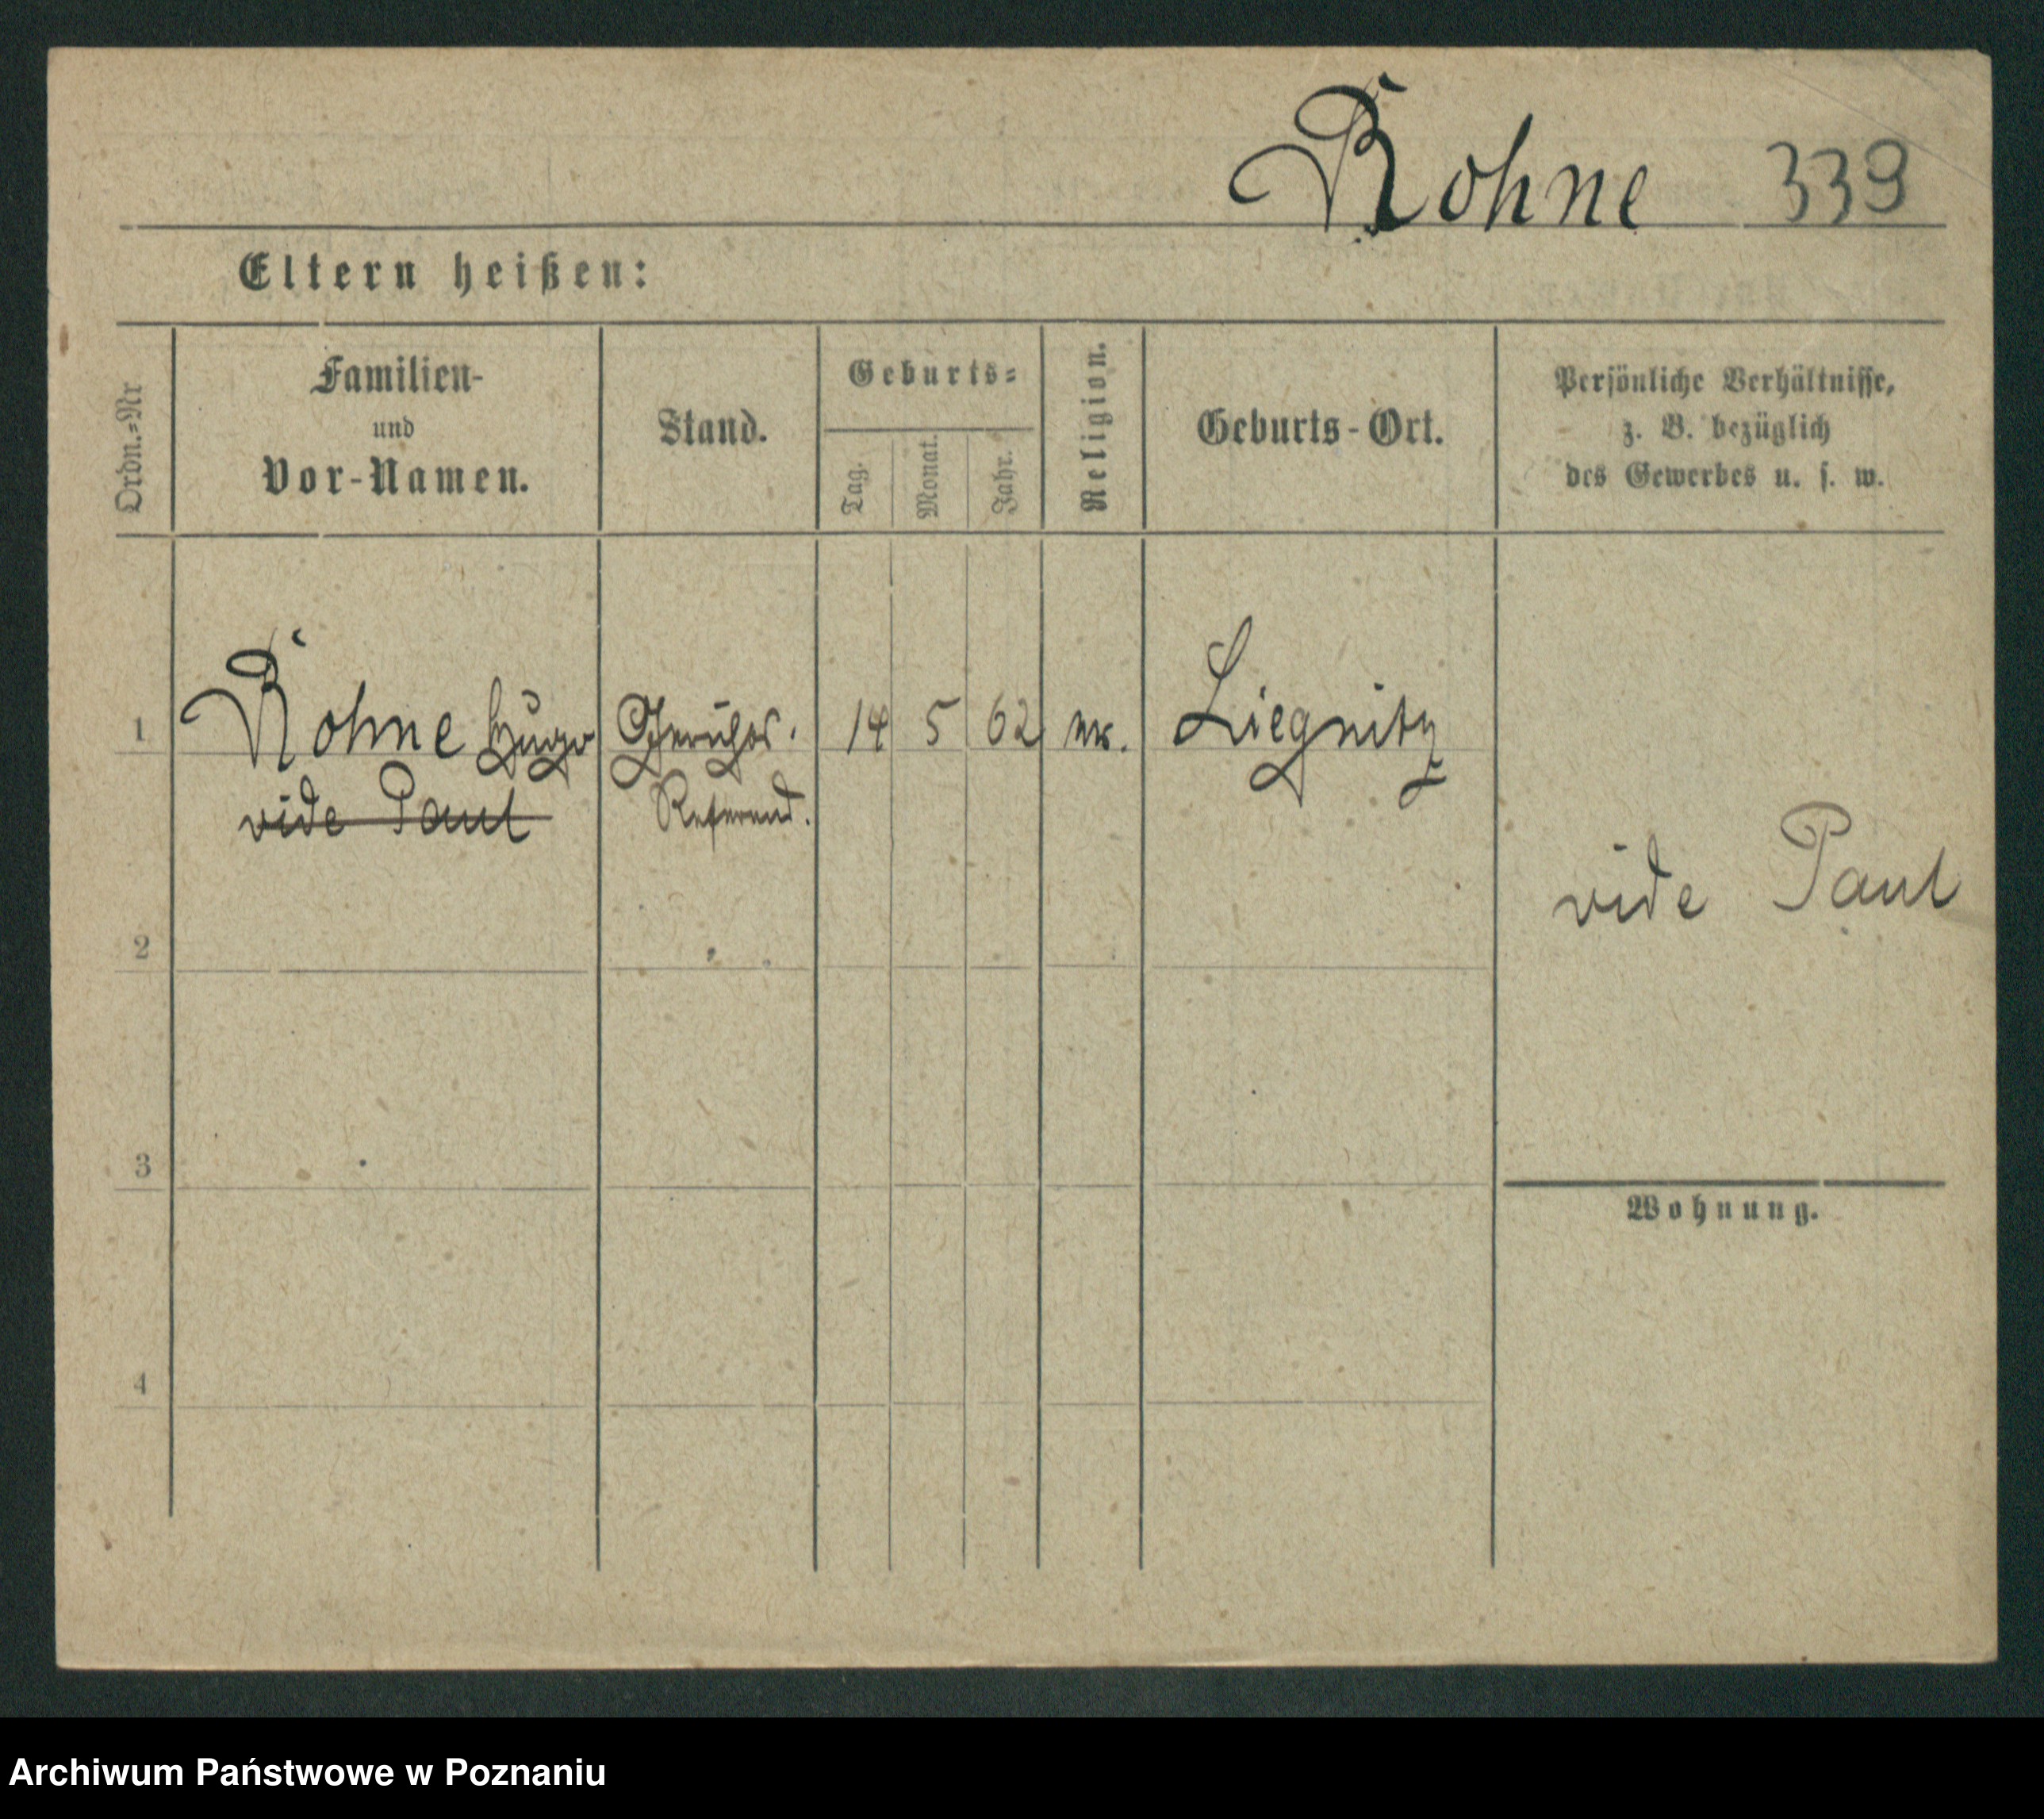 Rohne 339
Eltern heißen:
Ordn.=Nr
Familien-
und
Vor-Namen.
Stand.
Geburts=
Tag.
Monat.
Jahr.
Religion.
Geburts-Ort.
Persönliche Verhältnisse,
z. B. bezüglich
des Gewerbes u. s. w.
1 Rohne Hugo 14 5 62 Liegnitz
vide Paul Referend.
vide Paul
2
3
Wohnung.
4
Archiwum Państwowe w Poznaniu